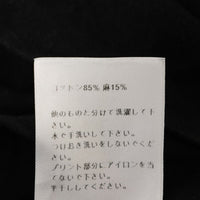 コットン85% 麻15%
他のものと分けて洗濯して下
さい。
水で手洗いして下さい。
つけおき洗いをしないでくだ
さい。
プリント部分にアイロンを当
てないで下さい。
半干ししてください。